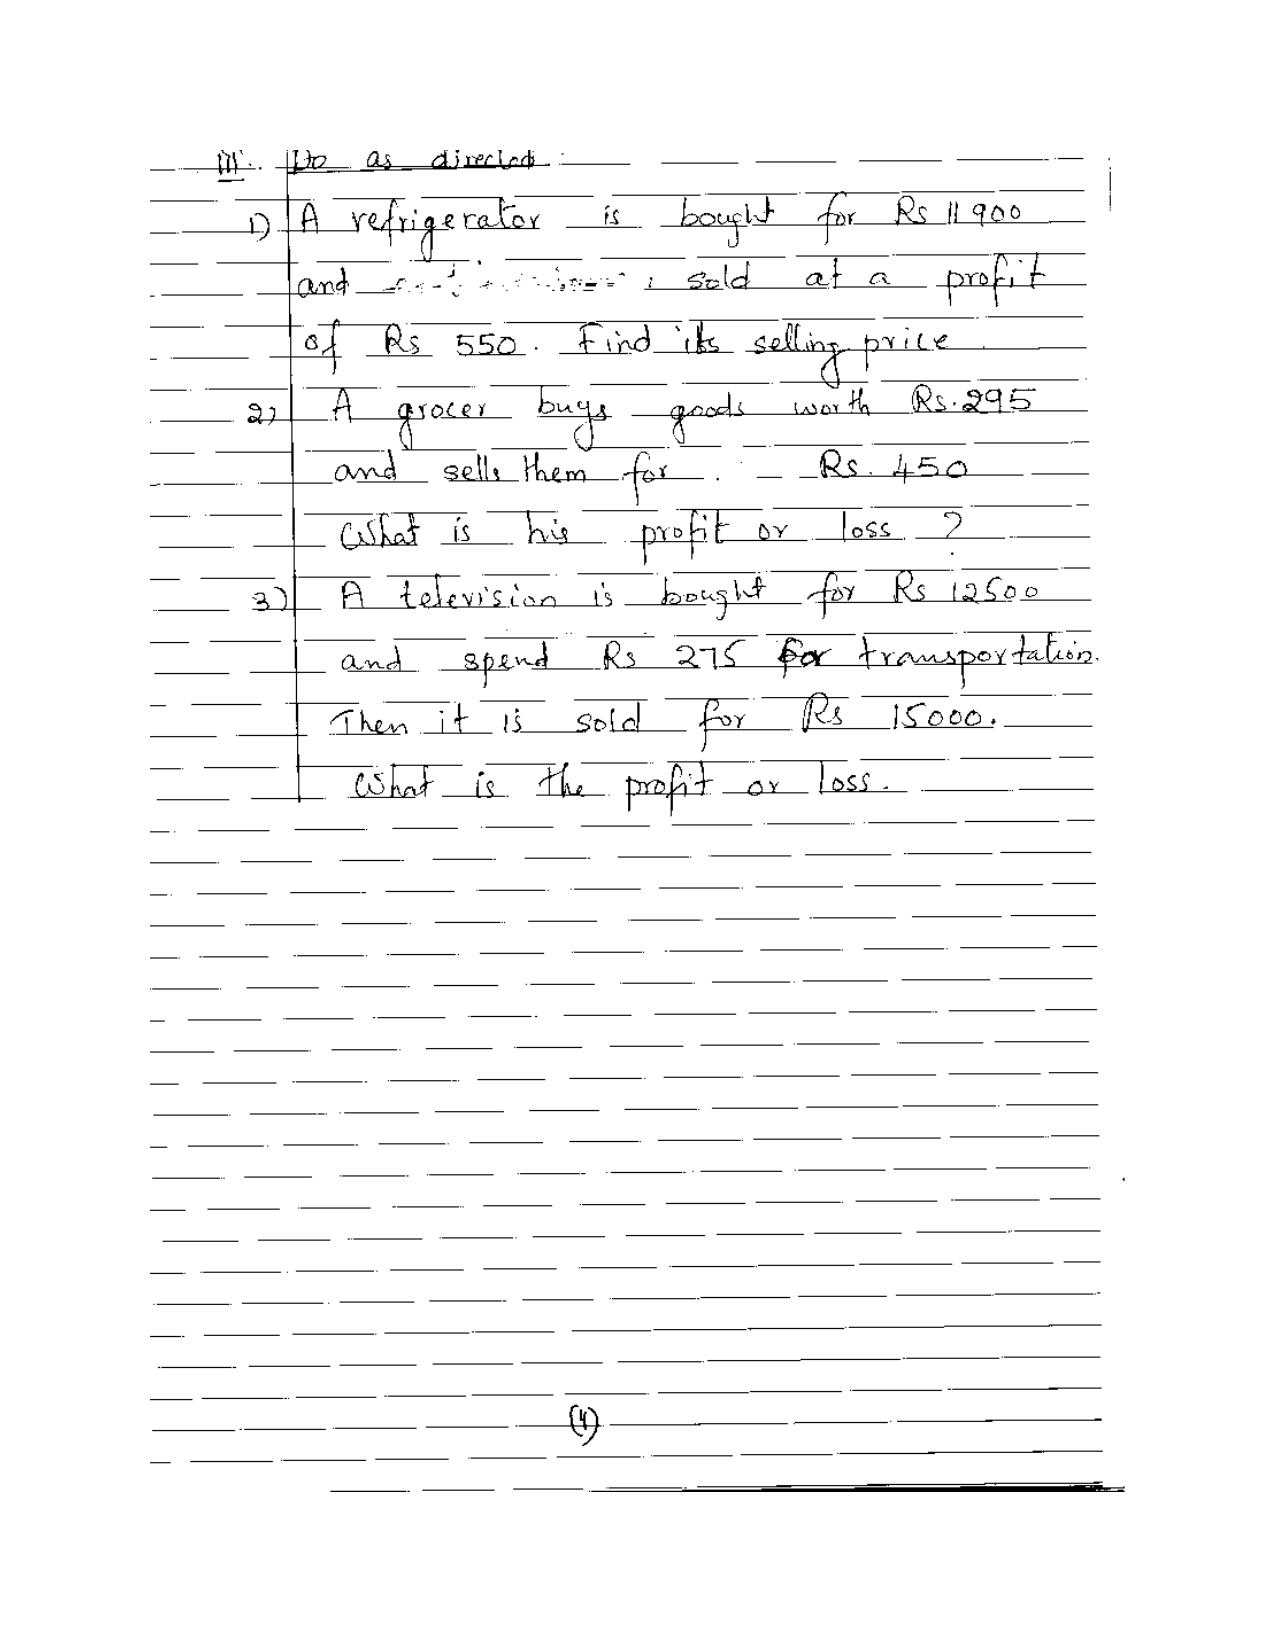 III. Do as directed :
1) A refrigerator is bought for Rs 11900
and sold at a profit
of Rs 550. Find its selling price.
2) A grocer buys goods worth Rs. 295
and sells them for Rs. 450
What is his profit or loss ?
3) A television is bought for Rs 12500
and spend Rs 275 for transportation.
Then it is sold for Rs 15000.
What is the profit or loss.
(4)